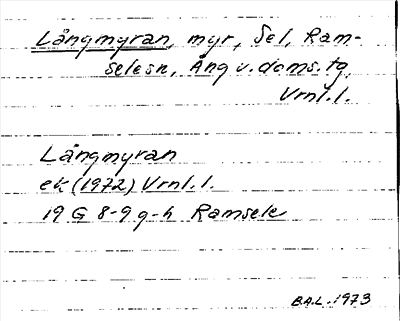 Långmyran, myr, Sel, Ram-
selesn, Ång v. doms. tg,
Vrnl. l.
Långmyran
ek (1972) Vrnl. l.
19 G 8-9 g-h Ramsele
B.A.L. 1973